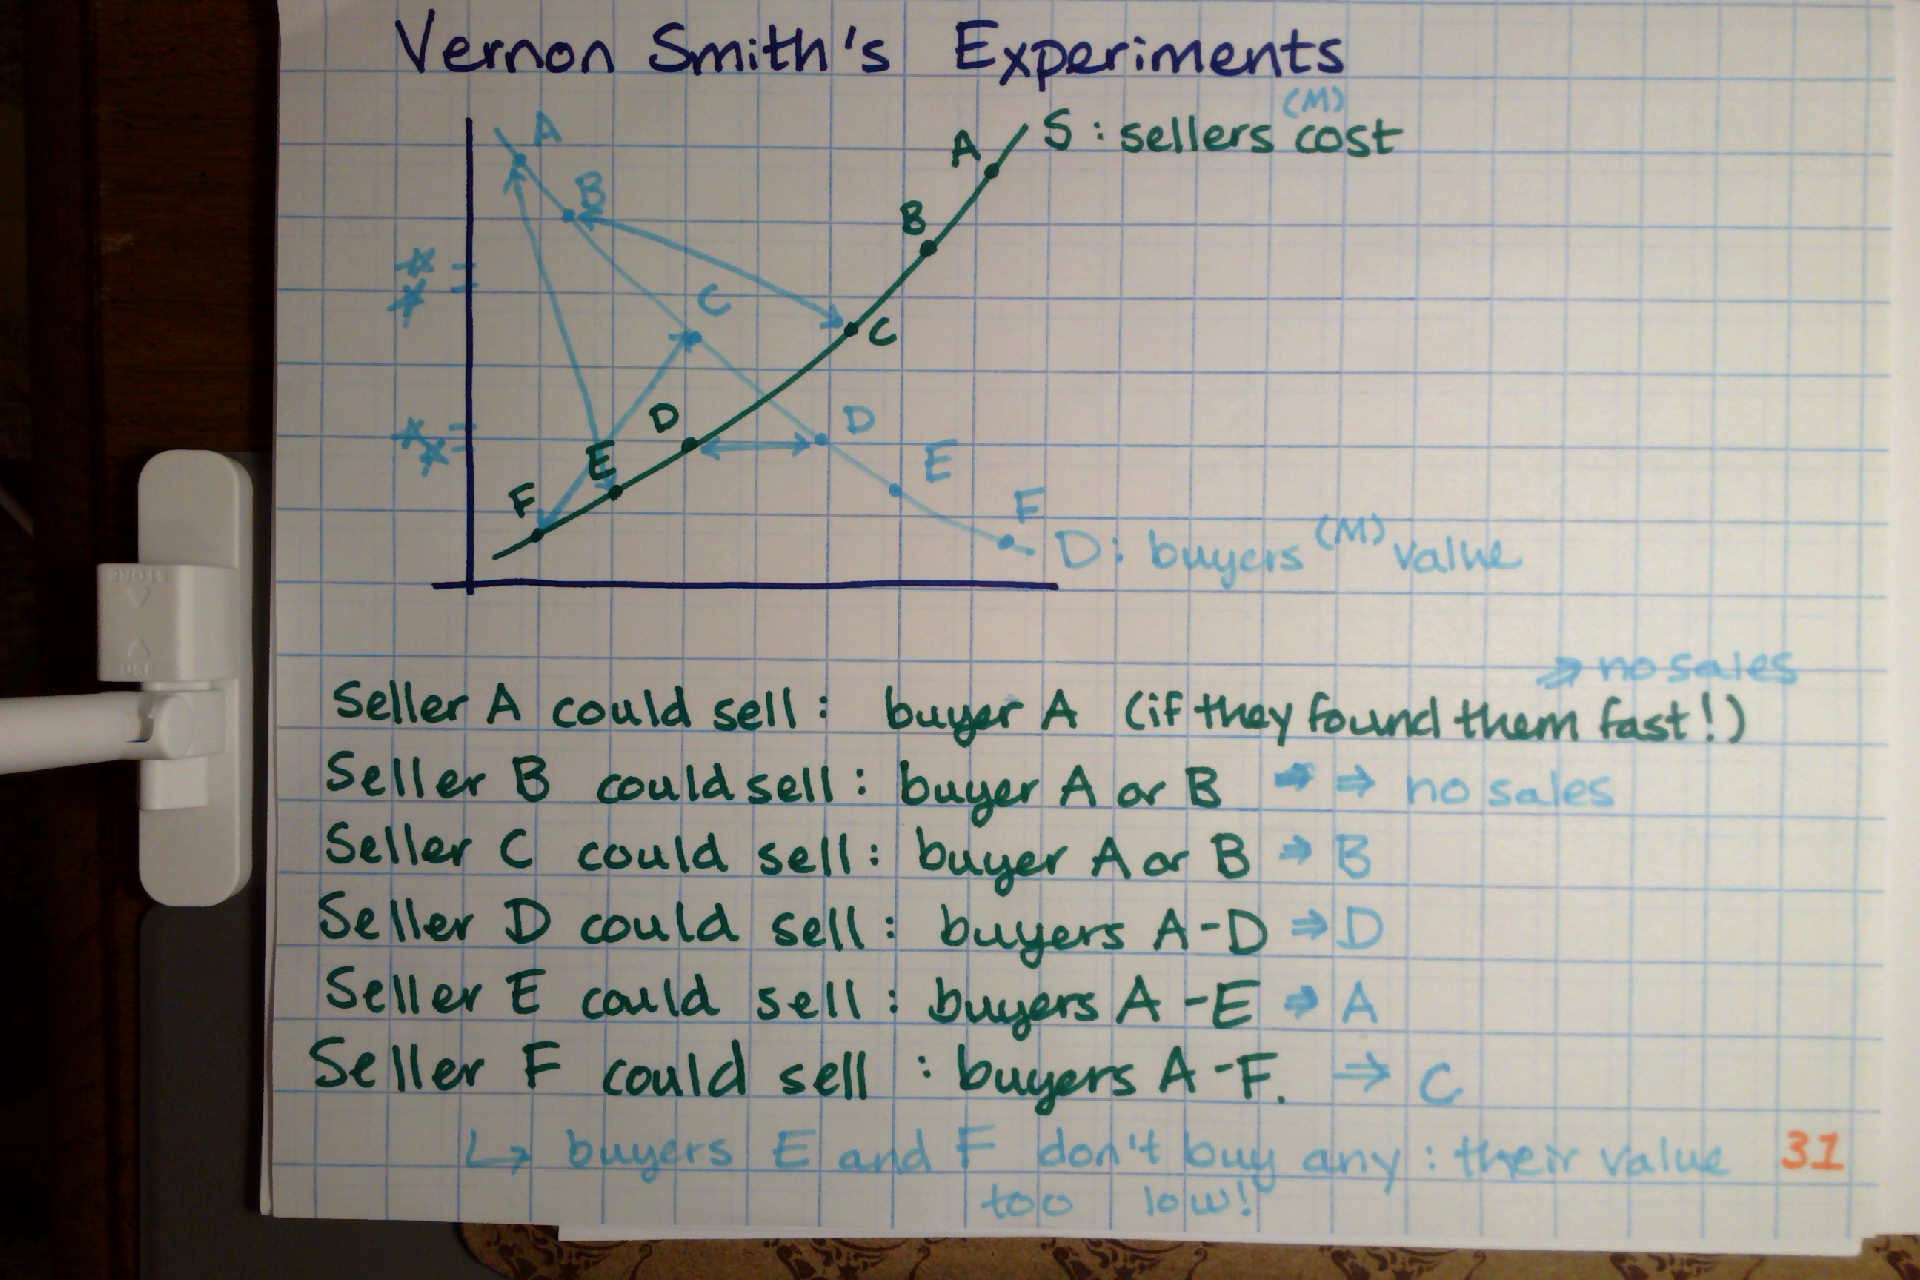 Vernon Smith's Experiments
(M)
S: sellers cost
A
A
B
B
C
C
D
D
E
E
F
F
D: buyers (M) value
⇒ no sales
Seller A could sell: buyer A (if they found them fast!)
Seller B could sell: buyer A or B ⇒ no sales
Seller C could sell: buyer A or B ⇒ B
Seller D could sell: buyers A-D ⇒ D
Seller E could sell: buyers A-E ⇒ A
Seller F could sell: buyers A-F. ⇒ C
↳ buyers E and F don't buy any: their value 31
too low!